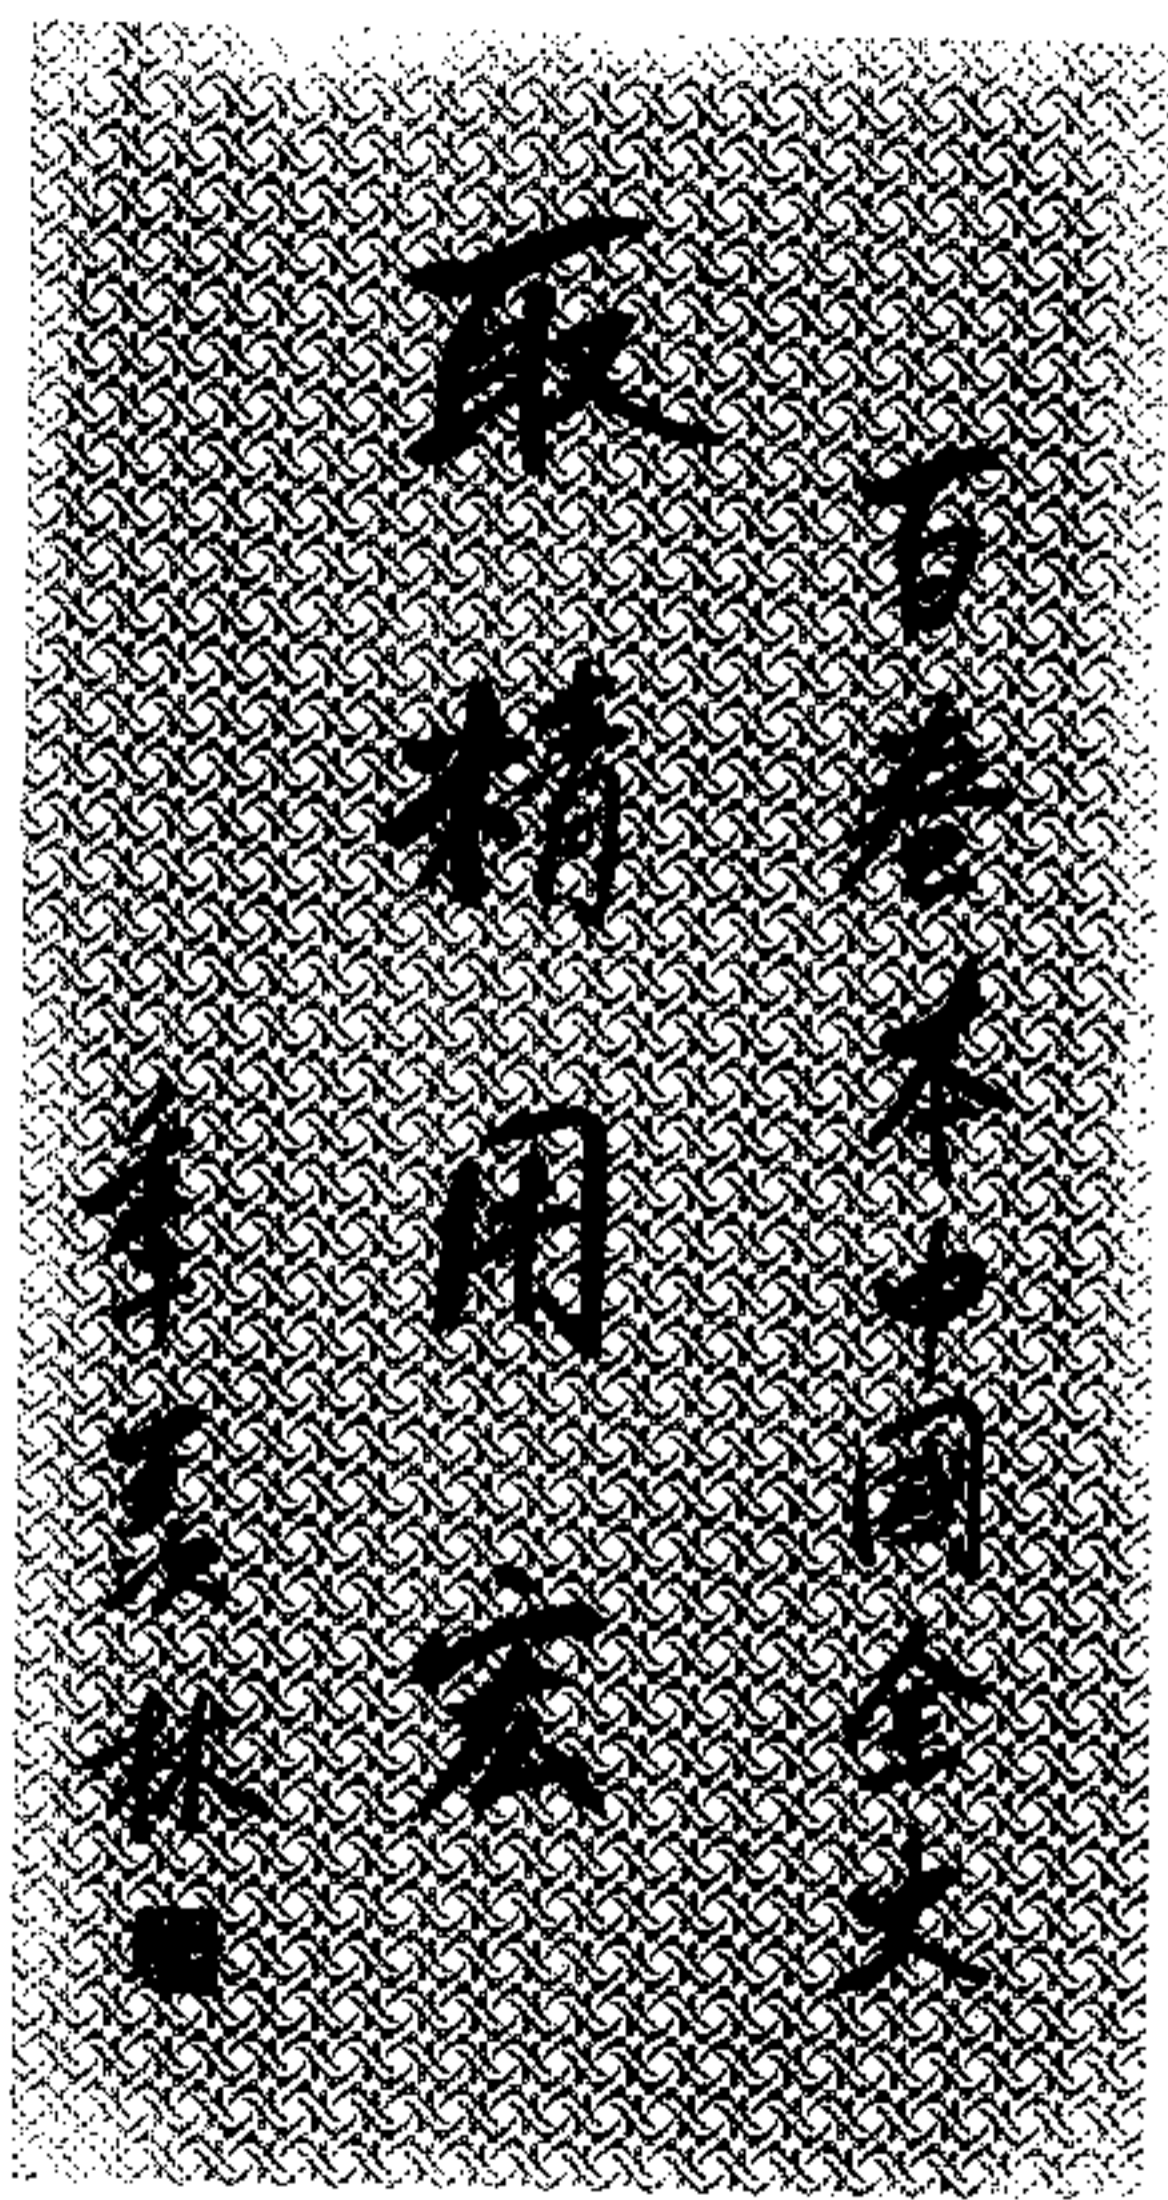 百卷本中国全史
取精用宏
季羡林